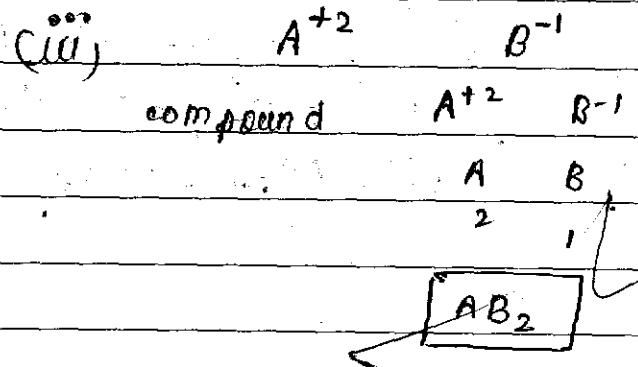 (iii) A⁺² B⁻¹
compound A⁺² B⁻¹
A B
2 1
AB₂